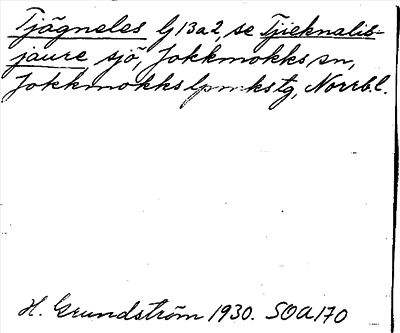 Tjägneles Lj13a2, se Tjieknalis-
jaure, sjö, Jokkmokks sn,
Jokkmokks lpmkstg, Norrb.l.
H. Grundström 1930. SOA170